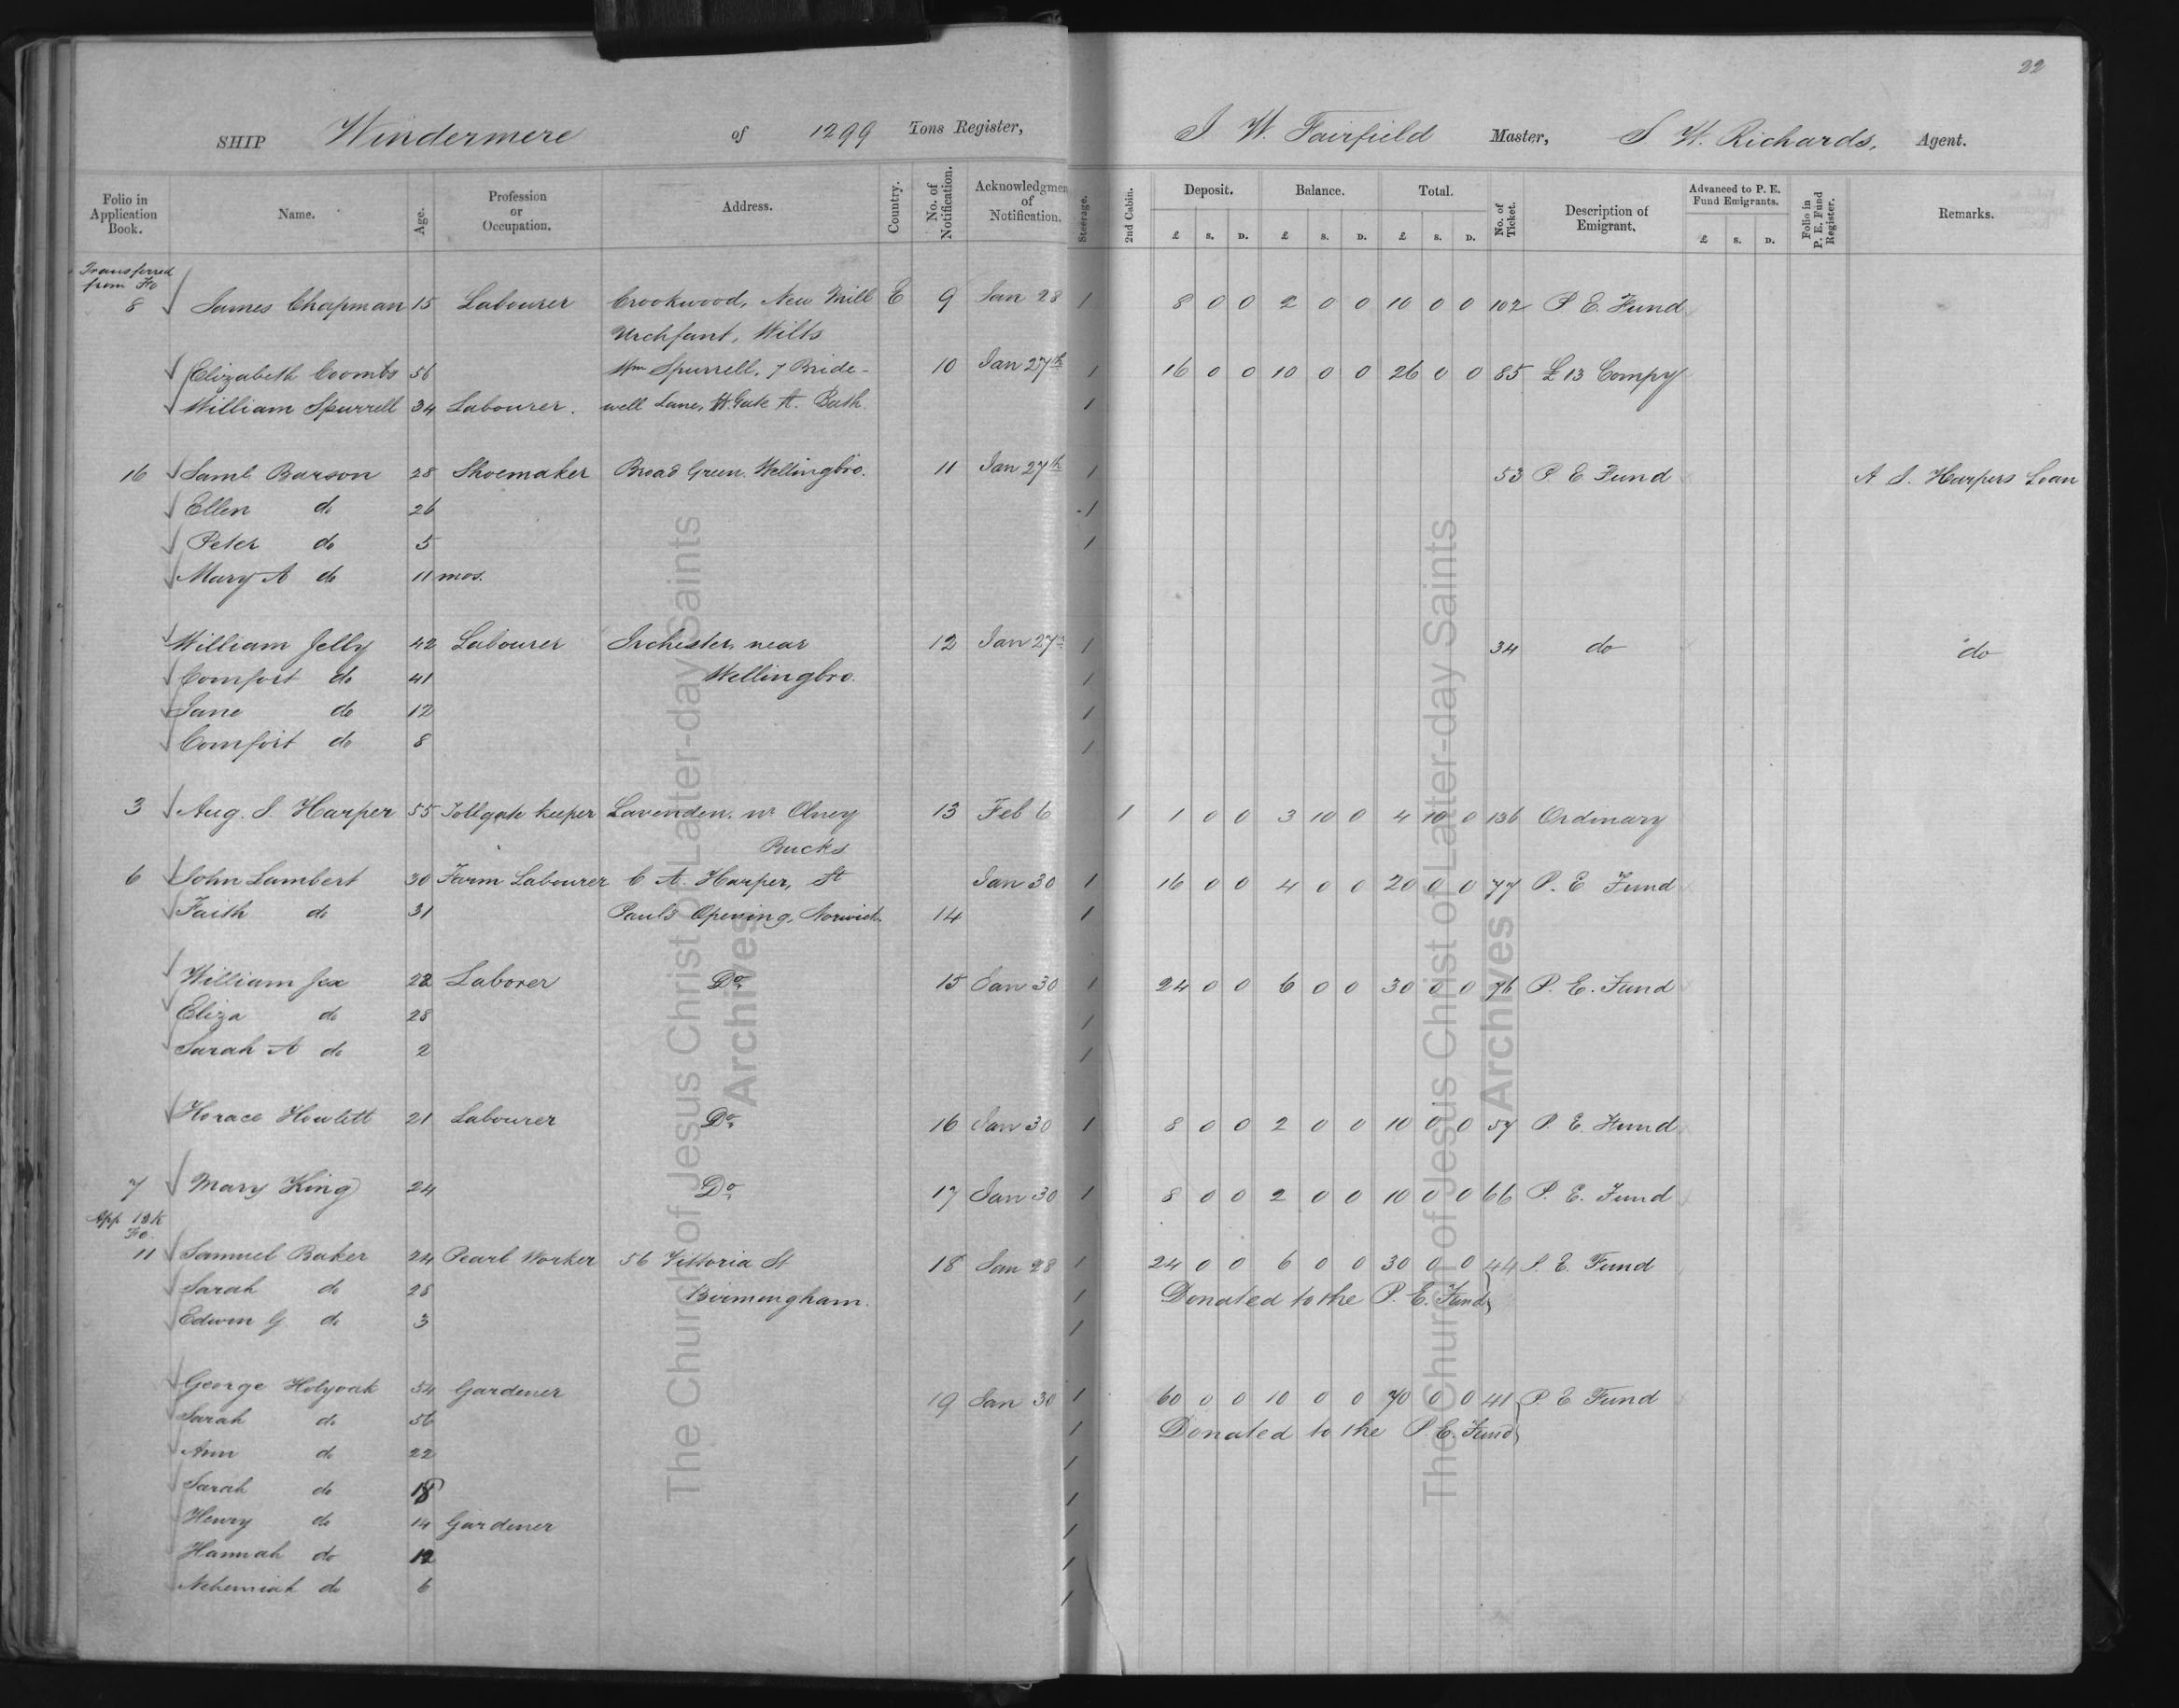 22
SHIP Windermere of 1299 Tons Register, J W. Fairfield Master, S W. Richards, Agent.
Folio in Application Book. Name. Age. Profession or Occupation. Address. Country. No. of Notification. Acknowledgmen of Notification. Steerage. 2nd Cabin. Deposit. Balance. Total. No. of Ticket. Description of Emigrant. Advanced to P. E. Fund Emigrants. Folio in P. E. Fund Register. Remarks.
£ S. D. £ S. D. £ S. D. £ S. D.
Transferred
from Fo
8 James Chapman 15 Labourer Crookwood, New Mill E 9 Jan 28 1 8 0 0 2 0 0 10 0 0 102 P E. Fund
Urchfant, Wilts
Elizabeth Coombs 56 Wm Spurrell, 7 Bride- 10 Jan 27th 1 16 0 0 10 0 0 26 0 0 85 £13 Compy
William Spurrell 34 Labourer. well Lane, Gate St. Bath 1
16 Saml. Barson 28 Shoemaker Broad Green. Wellingbro. 11 Jan 27th 1 53 P. E. Fund A S. Harpers Loan
Ellen do 26 1
Peter do 5 1
Mary A do 11 mos.
William Jelly 42 Labourer Irchester, near 12 Jan 27th 1 34 do do
Comfort do 41 Wellingbro. 1
Jane do 12 1
Comfort do 8 1
3 Aug. S. Harper 55 Tollgate keeper Lavenden. nr Olney 13 Feb 6 1 1 0 0 3 10 0 4 10 0 136 Ordinary
Bucks
6 John Lambert 30 Farm Labourer C A. Harper, St Jan 30 1 16 0 0 4 0 0 20 0 0 77 P. E Fund
Faith do 31 Paul's Opening, Norwich. 14 1
William Jex 22 Laborer Do. 15 Jan 30 1 24 0 0 6 0 0 30 0 0 76 P. E. Fund
Eliza do 28 1
Sarah A do 2 1
Horace Howlett 21 Labourer Do. 16 Jan 30 1 8 0 0 2 0 0 10 0 0 57 P. E. Fund
7 Mary King 24 Do. 17 Jan 30 1 8 0 0 2 0 0 10 0 0 66 P. E. Fund
App Bk
Fo.
11 Samuel Baker 24 Pearl Worker 56 Vittoria St 18 Jan 28 1 24 0 0 6 0 0 30 0 0 44 P. E. Fund
Sarah do 28 Birmingham. 1 Donated to the P. E. Fund
Edwin G do 3 1
George Holyoak 54 Gardener 19 Jan 30 1 60 0 0 10 0 0 70 0 0 41 P. E Fund
Sarah do 56 1 Donated to the P. E. Fund
Ann do 22 1
Sarah do 18 1
Henry do 14 Gardener 1
Hannah do 12 1
Nehemiah do 6 1
The Church of Jesus Christ of Latter-day Saints
Archives
The Church of Jesus Christ of Latter-day Saints
Archives